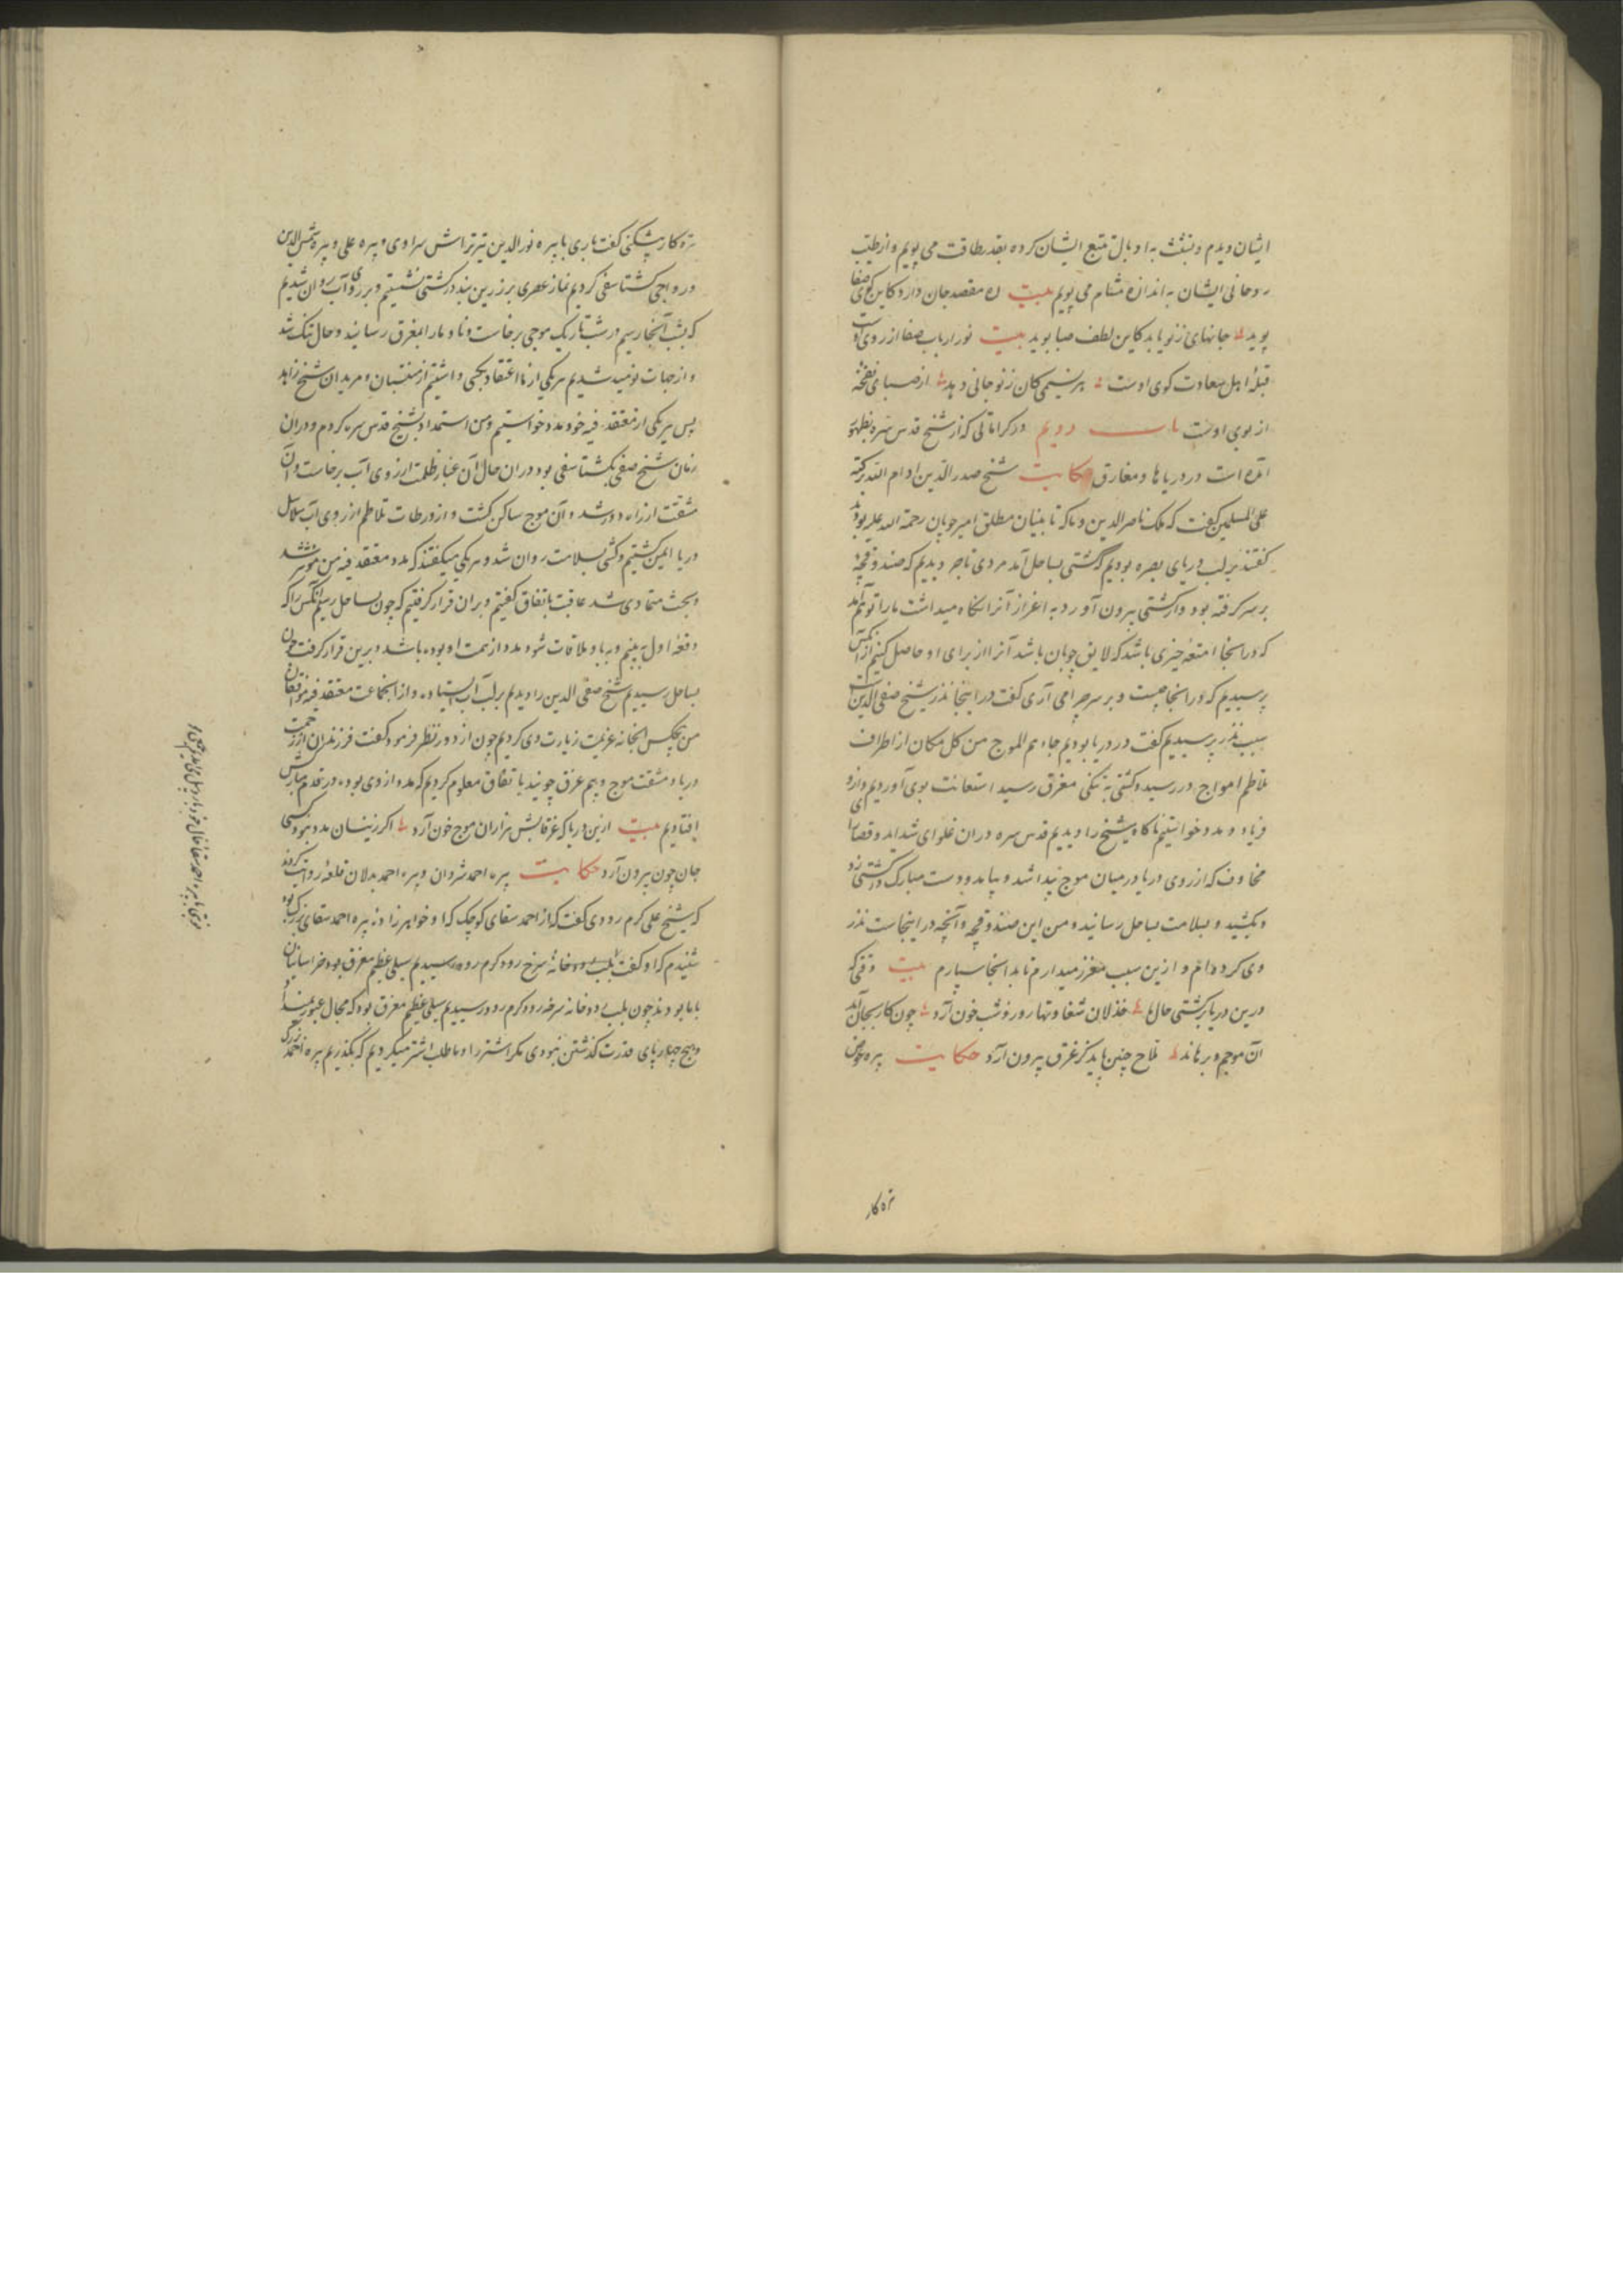 ایشان دیدم و تشبث به اذیال تتبع ایشان کرده بقدر طاقت می پویم و از طیب
روحانی ایشان به اندازه مشام می بویم بیت ره مقصد جان دارد کاین کوی صفا
پوید جانهای ز نو یابد کاین لطف صبا بوید بیت نور ارباب صفا از روی اوست
قبلهٔ اهل سعادت کوی اوست هر نسیمی کان ز نو جانی دهد از صبای نفخهٔ
از بوی اوست باب دویم در کراماتی که از شیخ قدس سره بظهور
آمده است در دریاها و مغارق حکایت شیخ صدر الدین ادام الله برکته
علی المسلمین گفت که ملک ناصر الدین و تا بنیان مطلق امیر چوپان رحمة الله علیه بودند
گفتند بر لب دریای بصره بودیم کشتی بساحل آمد مردی تاجر دیدیم که صندوقچهٔ
بر سر گرفته بود و از کشتی بیرون آورد به اعزاز آنرا نگاه میداشت ما را توهم آمد
که در اینجا امتعهٔ چیزی باشد که لایق چوپان باشد آنرا از برای او حاصل کنیم از آنکس
پرسیدیم که در اینجا چیست و بر سر چرا می آری گفت در اینجا نذر شیخ صفی الدین است
سبب نذر پرسیدیم گفت در دریا بودیم جاءهم الموج من کل مکان از اطراف
تلاطم امواج در رسید و کشتی به تنگی مغرق رسید استعانت بوی آوردیم و ازو
فریاد و مدد خواستیم ناگاه شیخ را دیدیم قدس سره در آن غلوای شداید و قصارای
مخاوف که از روی دریا در میان موج پیدا شد و بیامد و دست مبارک در کشتی زد
و بکشید و بسلامت بساحل رسانید و من این صندوقچه و آنچه در اینجاست نذر
وی کرده ام و ازین سبب معزز میدارم تا بدانجا سپارم بیت وقتی که
درین دریا بر کشتی حال ما خذلان شقاوتها روز و شب خون آرد چون کار بجان آمد
آن موجم و برهاند ملاح چنین باید کز غرق بیرون آرد حکایت پیره عوض
تره کار
تره کار پشکنی گفت باری با پیره نورالدین تیرتراش سراوی و پیره علی و پیره شمس الدین
در واجی گشتاسفی کردیم نماز عصری بر زرین بند در کشتی نشستیم و بر روی آب روان شدیم
که بشب آنجا رسیم در شب تاریک موجی برخاست و ناو ما را بمغرق رسانید و حال تنگ شد
و از حیات نومید شدیم هر یکی از ما اعتقاد بکسی داشتیم از منتسبان و مریدان شیخ زاهد
پس هر یکی از معتقد فیه خود مدد خواستیم و من استمداد بشیخ قدس سره کردم و در آن
زمان شیخ صفی بگشتاسفی بود در آن حال آن غبار ظلمت از روی آب برخاست و آن
مشقت از راه دور شد و آن موج ساکن گشت و از ورطات تلاطم از روی آب سلاسل
دریا ایمن گشتیم و کشتی بسلامت روان شد و هر یکی میگفتند که مدد معتقد فیه من مؤثر شد
و بحث متمادی شد عاقبت باتفاق گفتیم و بر آن قرار گرفتیم که چون بساحل رسیم آنکس را که
دفعهٔ اول ببینیم و با او ملاقات شود مدد از همت او بوده باشد و برین قرار گرفت چون
بساحل رسیدیم شیخ صفی الدین را دیدیم بر لب آب ایستاده و از آن جماعت معتقد فیه موافقان
من هیچکس آنجا نه عزیمت زیارت وی کردیم چون از دور نظر فرمود گفت فرزندان از زحمت
دریا و مشقت موج و بیم غرق چونید باتفاق معلوم کردیم که مدد از وی بوده در قدم مبارکش
افتادیم بیت ازین دریا که غرقابش هزاران موج خون آرد اگر زینسان مدد نبود کسی
جان چون بیرون آرد حکایت پیره احمد شروان و پیره احمد بدلان قلعه روایت کردند
که شیخ علی کرم رودی گفت که از احمد سقای کوچک که او خواهرزاده پیره احمد سقای بزرگ بود
شنیدم که او گفت بلب رودخانهٔ سرخ رود کرم رود رسیدیم سیلی عظیم مغرق بود خراسانیان
با ما بودند چون بلب رودخانه سرخه رود کرم رود رسیدیم سیلی عظیم مغرق بود که مجال عبور نمیداد
و هیچ چهارپای قدرت گذشتن نبودی مگر اشتر را و ما طلب اشتر میکردیم که بگذریم پیره احمد بزرگ